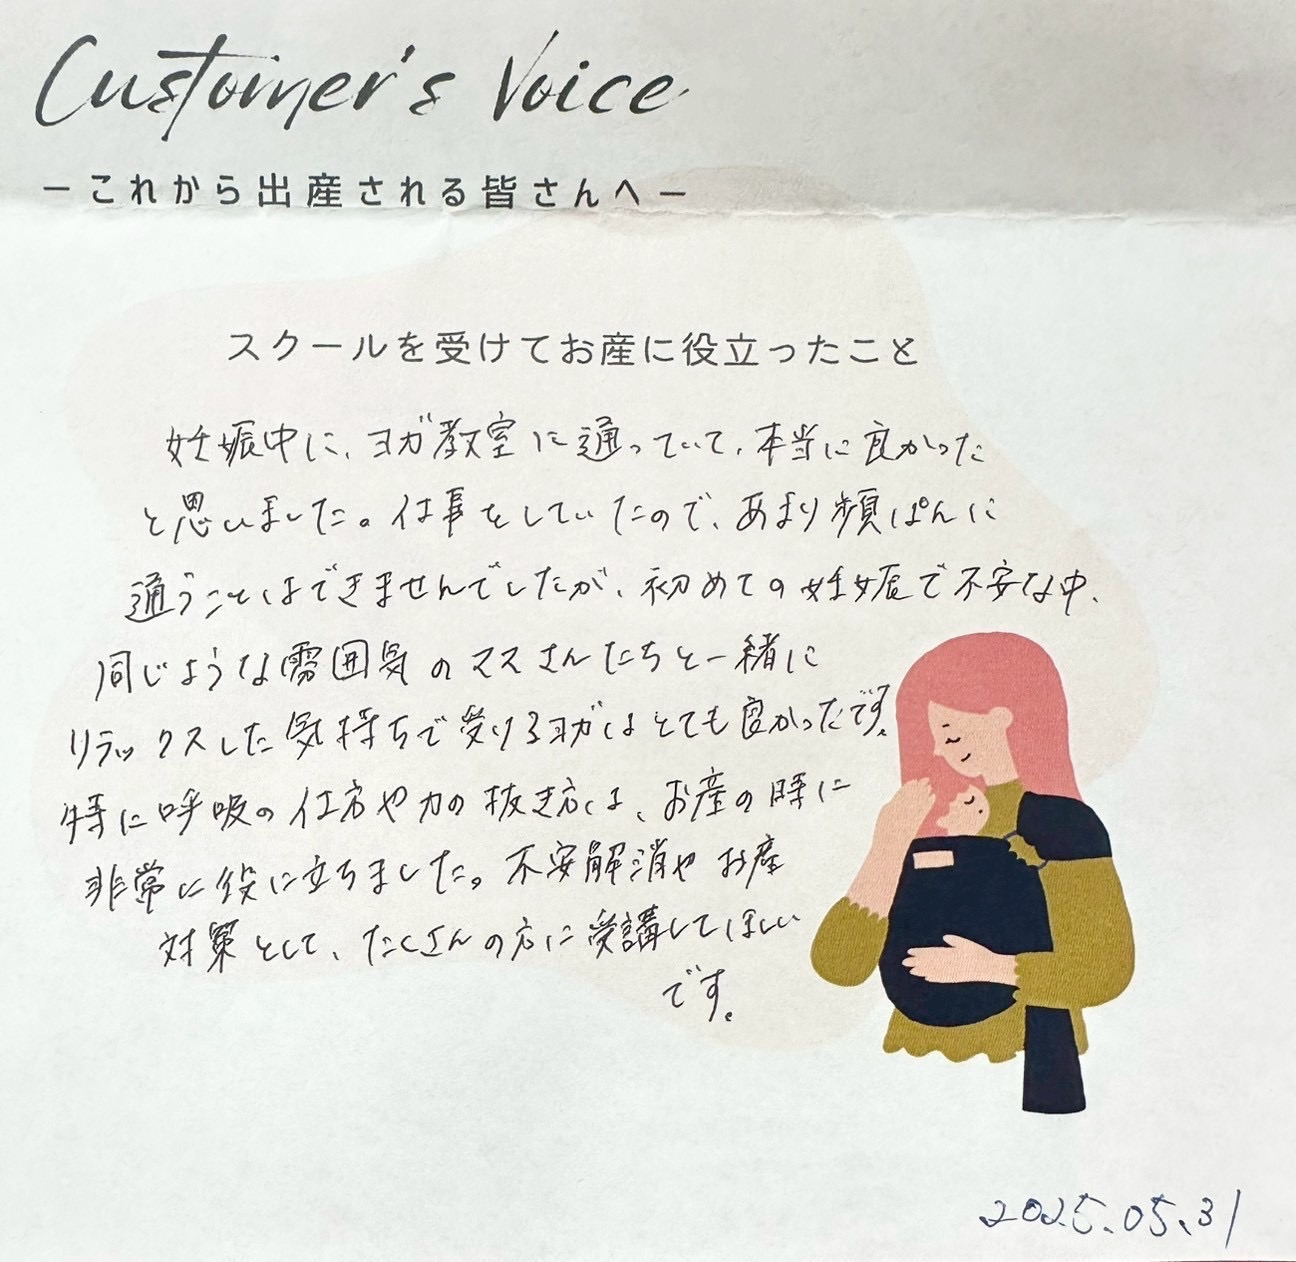 Customer's Voice
－これから出産される皆さんへ－
スクールを受けてお産に役立ったこと
妊娠中に、ヨガ教室に通っていて、本当に良かった
と思いました。仕事をしていたので、あまり頻ぱんに
通うことはできませんでしたが、初めての妊娠で不安な中、
同じような雰囲気のママさんたちと一緒に
リラックスした気持ちで受けるヨガはとても良かったです。
特に呼吸の仕方や力の抜き方は、お産の時に
非常に役に立ちました。不安解消やお産
対策として、たくさんの方に受講してほしい
です。
2025.05.31